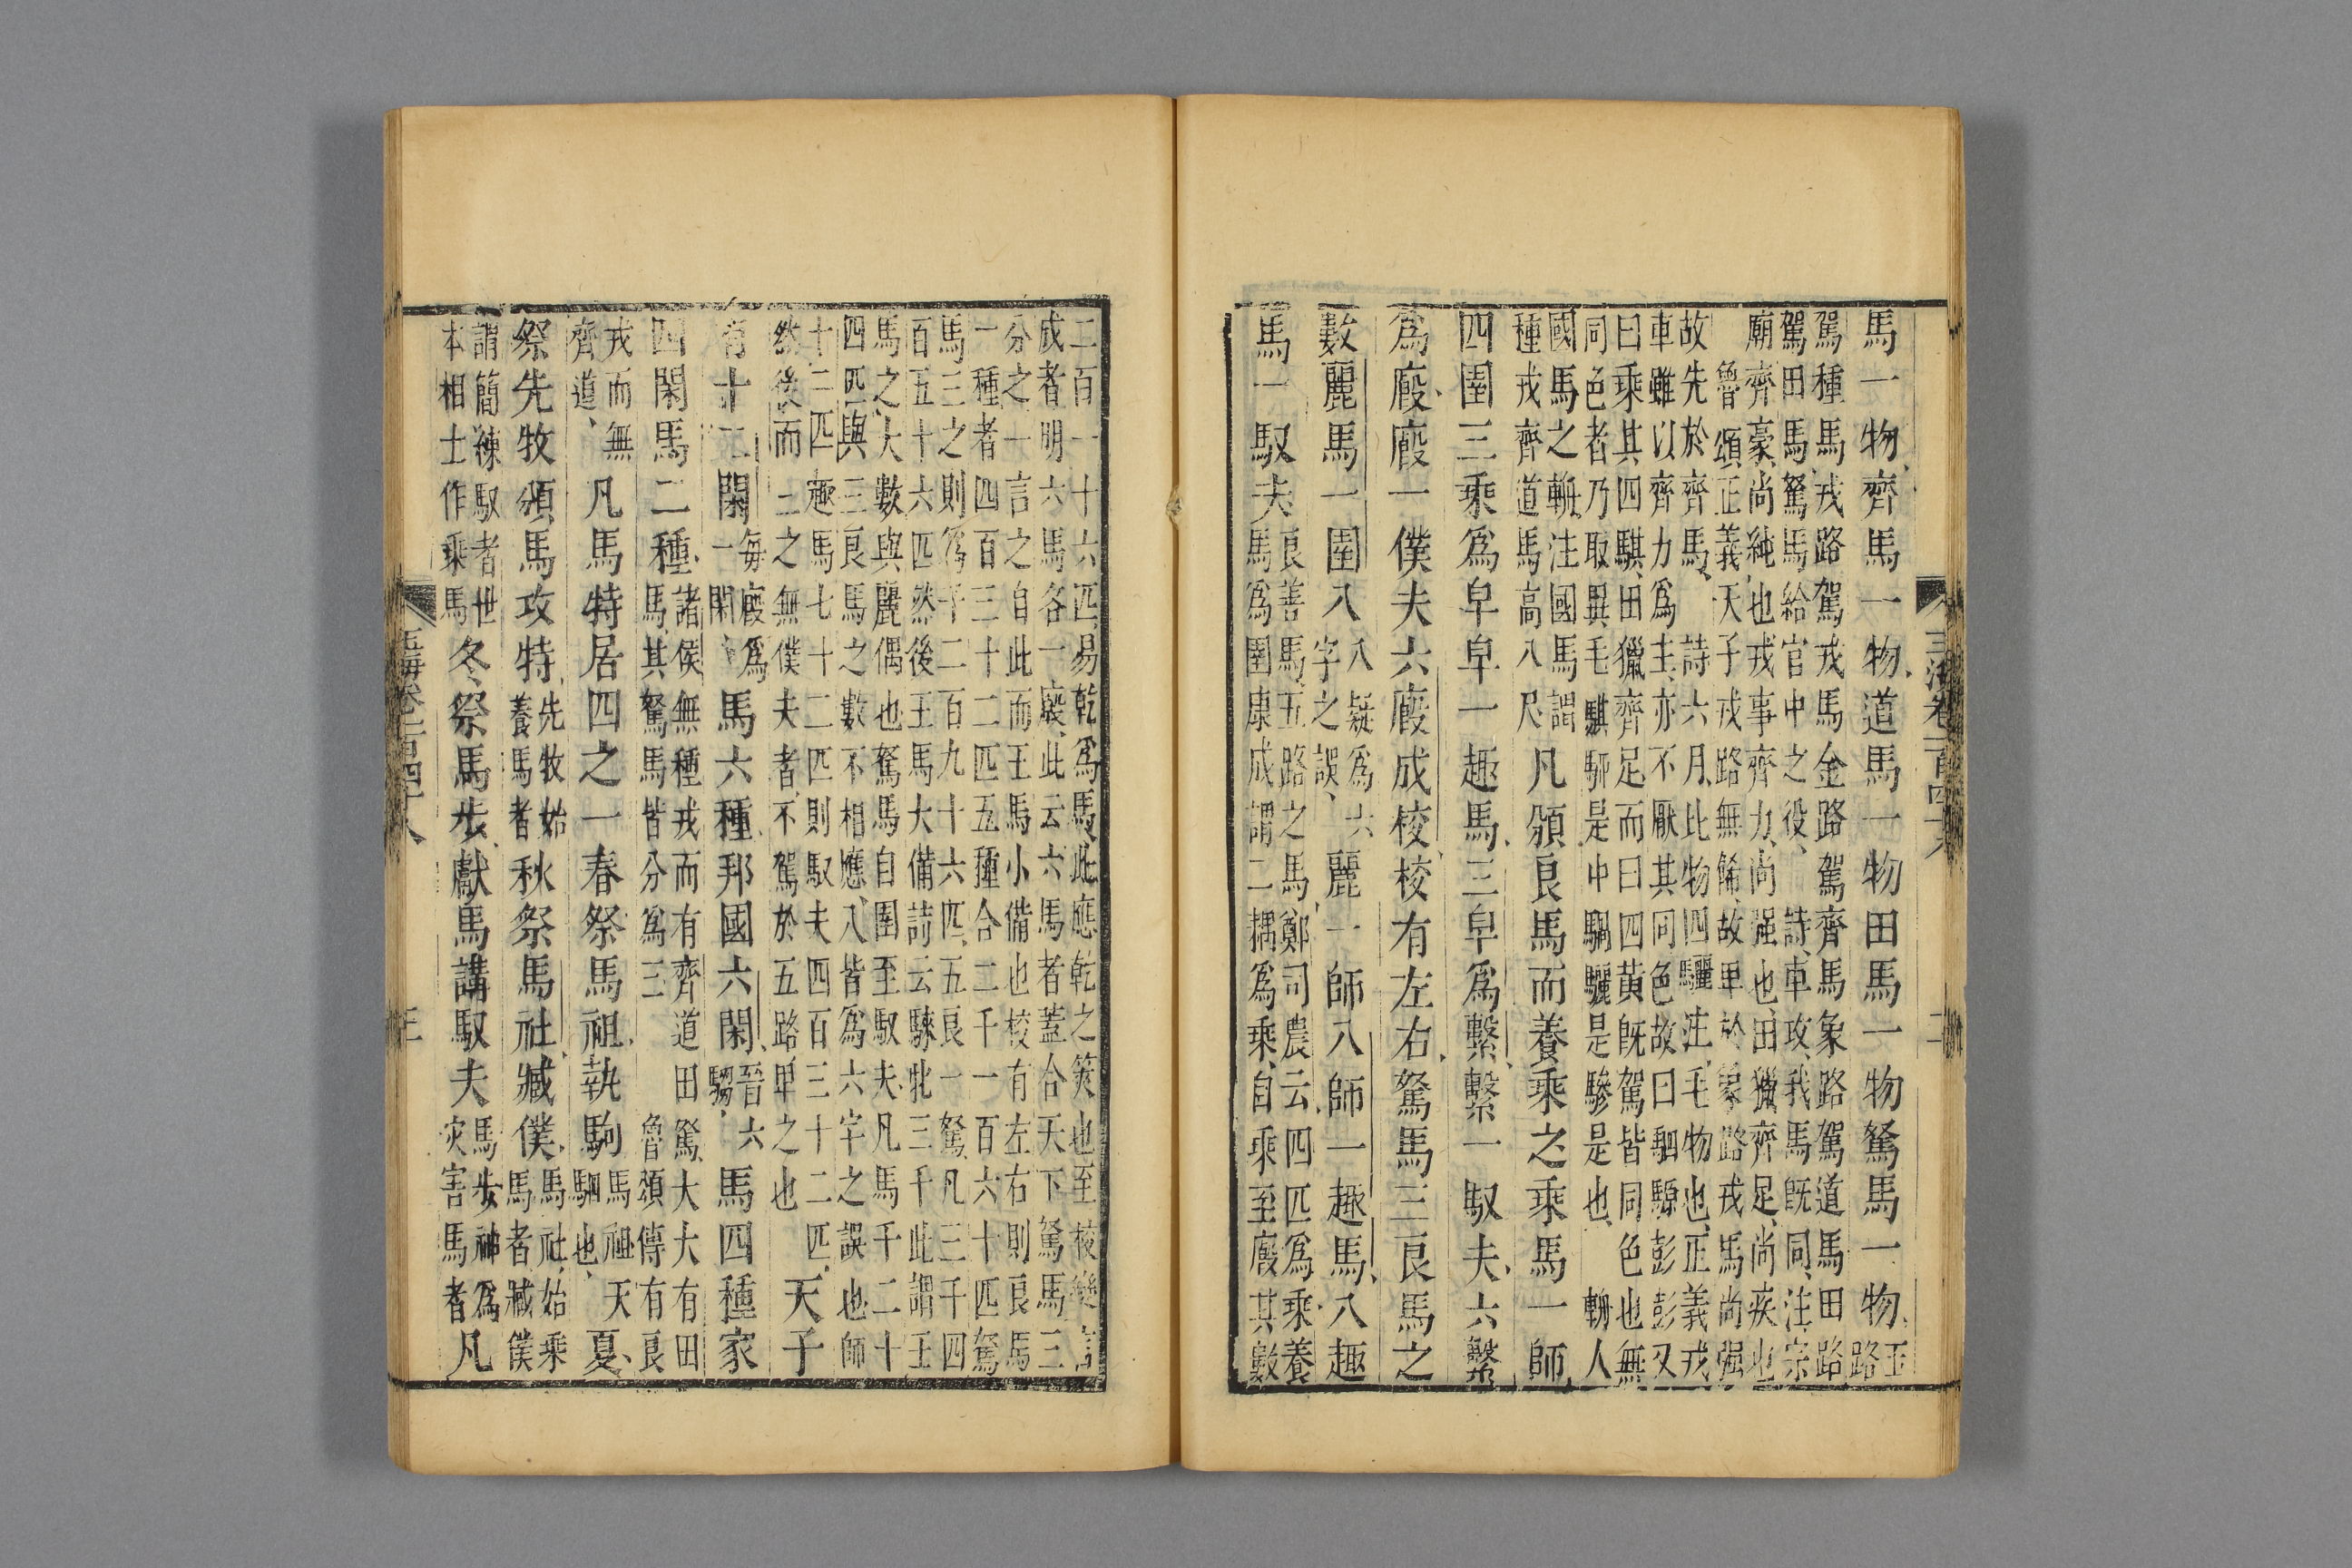 馬一物齊馬一物道馬一物田馬一物駑馬一物玉路
駕種馬戎路駕戎馬金路駕齊馬象路駕道馬田路
駕田馬駑馬給官中之役詩車攻我馬旣同注宗
廟齊豪尚純也戎事齊力尚强也田獵齊足尚疾也
魯頌正義天子戎路無餙故卑於象路戎馬尚强
故先於齊馬詩六月比物四驪注毛物也正義戎
車雖以齊力爲主亦不厭其同色故曰駟騵彭彭又
曰乘其四騏田獵齊足而曰四黃旣駕皆同色也無
同色者乃取異毛騏騮是中騧驪是驂是也輈人
國馬之輈注國馬謂
種戎齊道馬高八尺
凡頒良馬而養乘之乘馬一師
四圉三乘爲皁皁一趣馬三皁爲繫繫一馭夫六繫
爲廄廄一僕夫六廄成校校有左右駑馬三良馬之
數麗馬一圉八八疑爲六字之誤麗一師八師一趣馬八趣
馬一馭夫良善馬五路之馬鄭司農云四匹爲乘養
馬爲圉康成謂二耦爲乘自乘至廄其數
二百一十六匹易乾爲馬此應乾之筴也至校變言
成者明六馬各一廄此云六馬者蓋合天下駑馬三
分之一言之自此而王馬小備也校有左右則良馬
一種者四百三十二匹五種合二千一百六十匹駑
馬三之則爲千二百九十六匹五良一駑凡三千四
百五十六匹然後王馬大備詩云騋牝三千此謂王
馬之大數與麗偶也駑馬自圉至馭夫凡馬千二十
四匹與三良馬之數不相應八皆爲六字之誤也師
十二匹趣馬七十二匹則馭夫四百三十二匹
然後而三之無僕夫者不駕於五路卑之也
天子
有十二閑每廄爲一閑馬六種邦國六閑晉六騶馬四種家
四閑馬二種諸侯無種戎而有齊道田駑大夫有田
馬其駑馬皆分爲三魯頌傳有良
戎而無
齊道
凡馬特居四之一春祭馬祖執駒馬祖天駟也夏
祭先牧頒馬攻特先牧始養馬者秋祭馬社臧僕馬社始乘馬者臧僕
謂簡練馭者世
本相士作乘馬
冬祭馬步獻馬講馭夫馬步神爲灾害馬者凡
玉海卷一百四十八